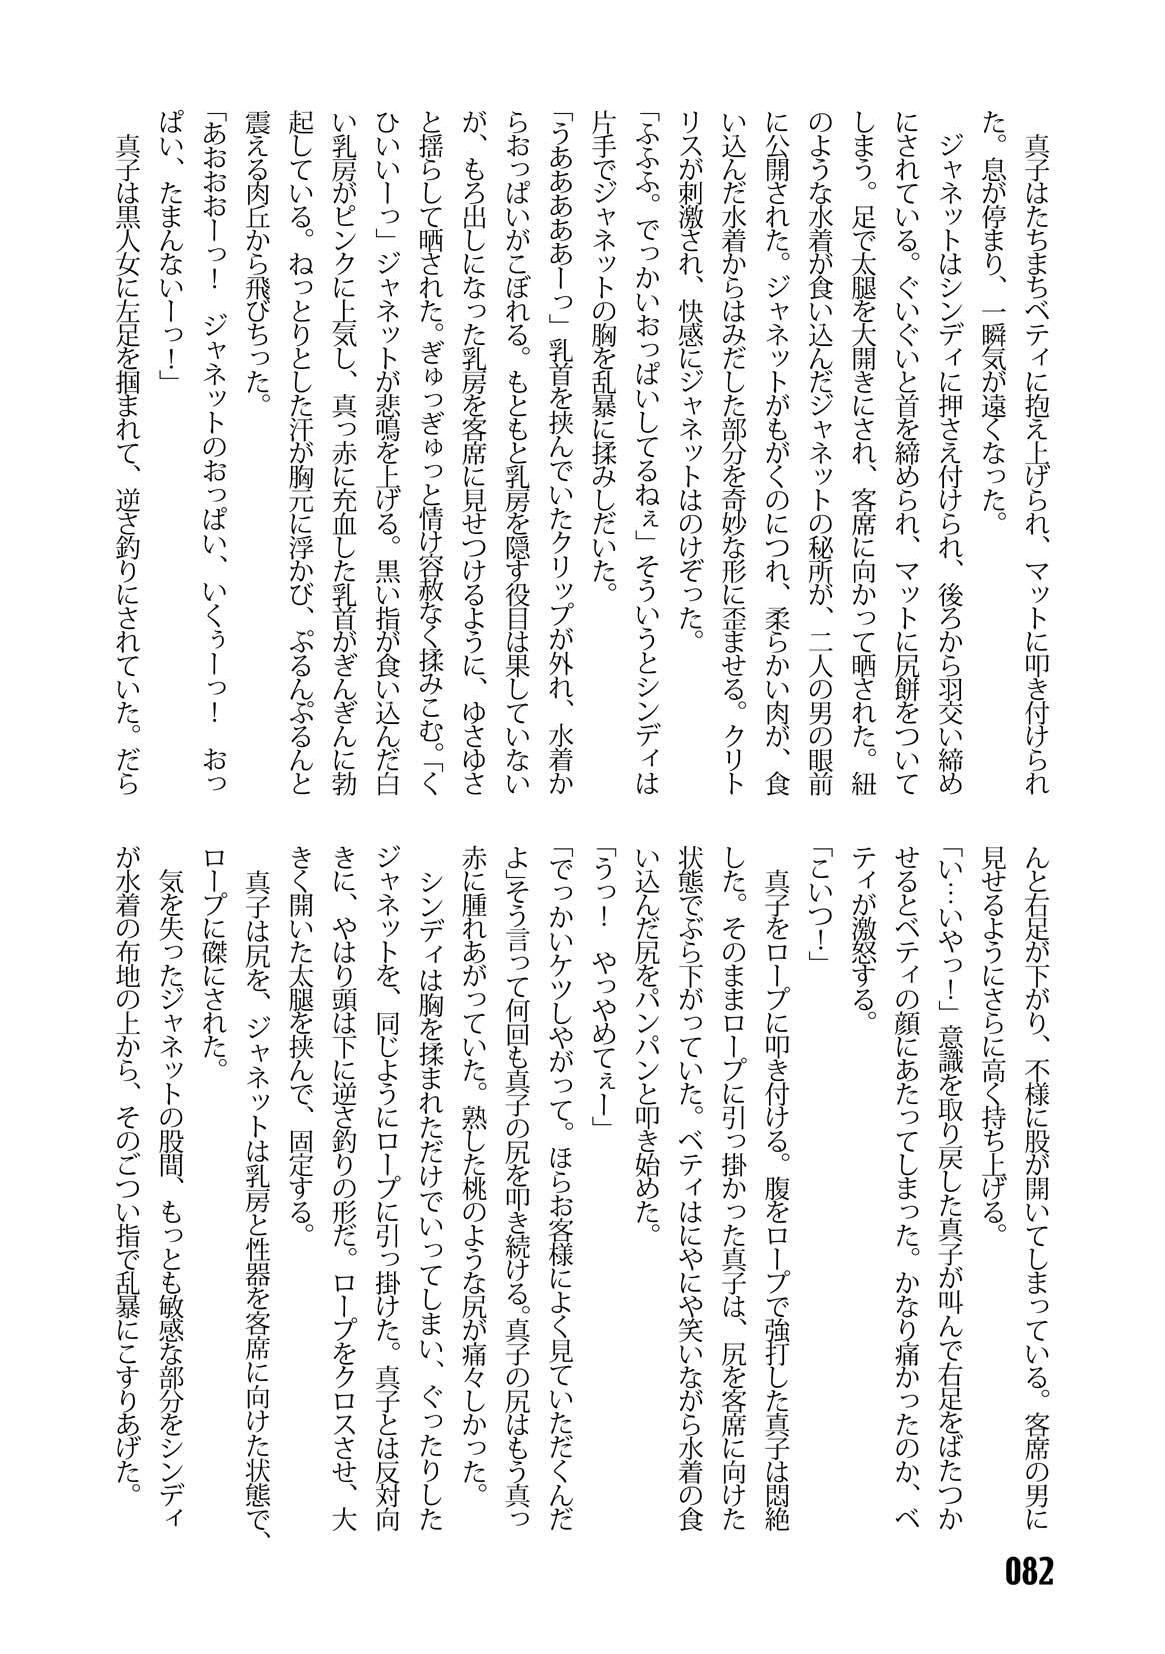 真子はたちまちベティに抱え上げられ、マットに叩き付けられ
た。息が停まり、一瞬気が遠くなった。
ジャネットはシンディに押さえ付けられ、後ろから羽交い締め
にされている。ぐいぐいと首を締められ、マットに尻餅をついて
しまう。足で太腿を大開きにされ、客席に向かって晒された。紐
のような水着が食い込んだジャネットの秘所が、二人の男の眼前
に公開された。ジャネットがもがくのにつれ、柔らかい肉が、食
い込んだ水着からはみだした部分を奇妙な形に歪ませる。クリト
リスが刺激され、快感にジャネットはのけぞった。
「ふふふ。でっかいおっぱいしてるねぇ」そういうとシンディは
片手でジャネットの胸を乱暴に揉みしだいた。
「うああああああーっ」乳首を挟んでいたクリップが外れ、水着か
らおっぱいがこぼれる。もともと乳房を隠す役目は果していない
が、もろ出しになった乳房を客席に見せつけるように、ゆさゆさ
と揺らして晒された。ぎゅっぎゅっと情け容赦なく揉みこむ。「く
ひいいーっ」ジャネットが悲鳴を上げる。黒い指が食い込んだ白
い乳房がピンクに上気し、真っ赤に充血した乳首がぎんぎんに勃
起している。ねっとりとした汗が胸元に浮かび、ぷるんぷるんと
震える肉丘から飛びちった。
「あおおおーっ!　ジャネットのおっぱい、いくぅーっ!　おっ
ぱい、たまんないーっ!」
真子は黒人女に左足を掴まれて、逆さ釣りにされていた。だら
んと右足が下がり、不様に股が開いてしまっている。客席の男に
見せるようにさらに高く持ち上げる。
「い…いやっ!」意識を取り戻した真子が叫んで右足をばたつか
せるとベティの顔にあたってしまった。かなり痛かったのか、ベ
ティが激怒する。
「こいつ!」
真子をロープに叩き付ける。腹をロープで強打した真子は悶絶
した。そのままロープに引っ掛かった真子は、尻を客席に向けた
状態でぶら下がっていた。ベティはにやにや笑いながら水着の食
い込んだ尻をパンパンと叩き始めた。
「うっ!　やっやめてぇー」
「でっかいケツしやがって。ほらお客様によく見ていただくんだ
よ」そう言って何回も真子の尻を叩き続ける。真子の尻はもう真っ
赤に腫れあがっていた。熟した桃のような尻が痛々しかった。
シンディは胸を揉まれただけでいってしまい、ぐったりした
ジャネットを、同じようにロープに引っ掛けた。真子とは反対向
きに、やはり頭は下に逆さ釣りの形だ。ロープをクロスさせ、大
きく開いた太腿を挟んで、固定する。
真子は尻を、ジャネットは乳房と性器を客席に向けた状態で、
ロープに磔にされた。
気を失ったジャネットの股間、もっとも敏感な部分をシンディ
が水着の布地の上から、そのごつい指で乱暴にこすりあげた。
082